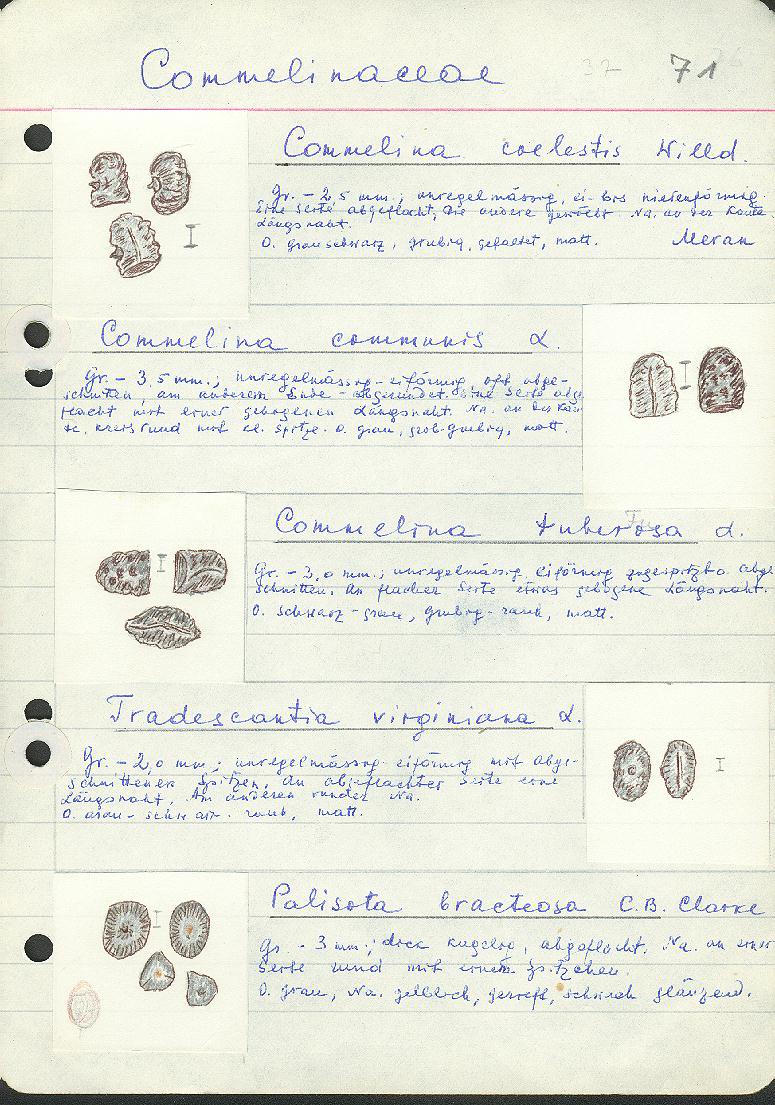 Commelinaceae 37 71
Commelina coelestis Willd.
Gr. - 2,5 mm.; unregelmässig, ei- bis nierenförmig.
Eine Seite abgeflacht, die andere gewölbt. Na. an der Kante.
Längsnaht.
O. grauschwarz, grubig, gefaltet, matt. Meran
Commelina communis L.
Gr. - 3,5 mm.; unregelmässig-eiförmig, oft abge-
schnitten, am anderem Ende - abgerundet. Eine Seite abge
flacht mit einer gebogenen Längsnaht. Na. an der Kan
te. kreisrund mit kl. Spitze. O. grau, grob-grubig, matt.
Commelina tuberosa L.
Gr. - 3,0 mm.; unregelmässig, eiförmig zugespitzt o. abge
schnitten. An flacher Seite etwas gebogene Längsnaht.
O. schwarz-grau, grubig-rauh, matt.
Tradescantia virginiana L.
Gr. - 2,0 mm; unregelmässig-eiförmig mit abge-
schnittenen Spitzen, an abgeflachter Seite eine
Längsnaht. Am anderen runder Na.
O. grau-schwarz. rauh, matt.
Palisota bracteosa C.B. Clarke
Gr. - 3 mm.; dick kugelig, abgeflacht. Na. an einer
Seite rund mit einem Spitzchen.
O. grau, Na. gelblich, gereift, schwach glänzend.